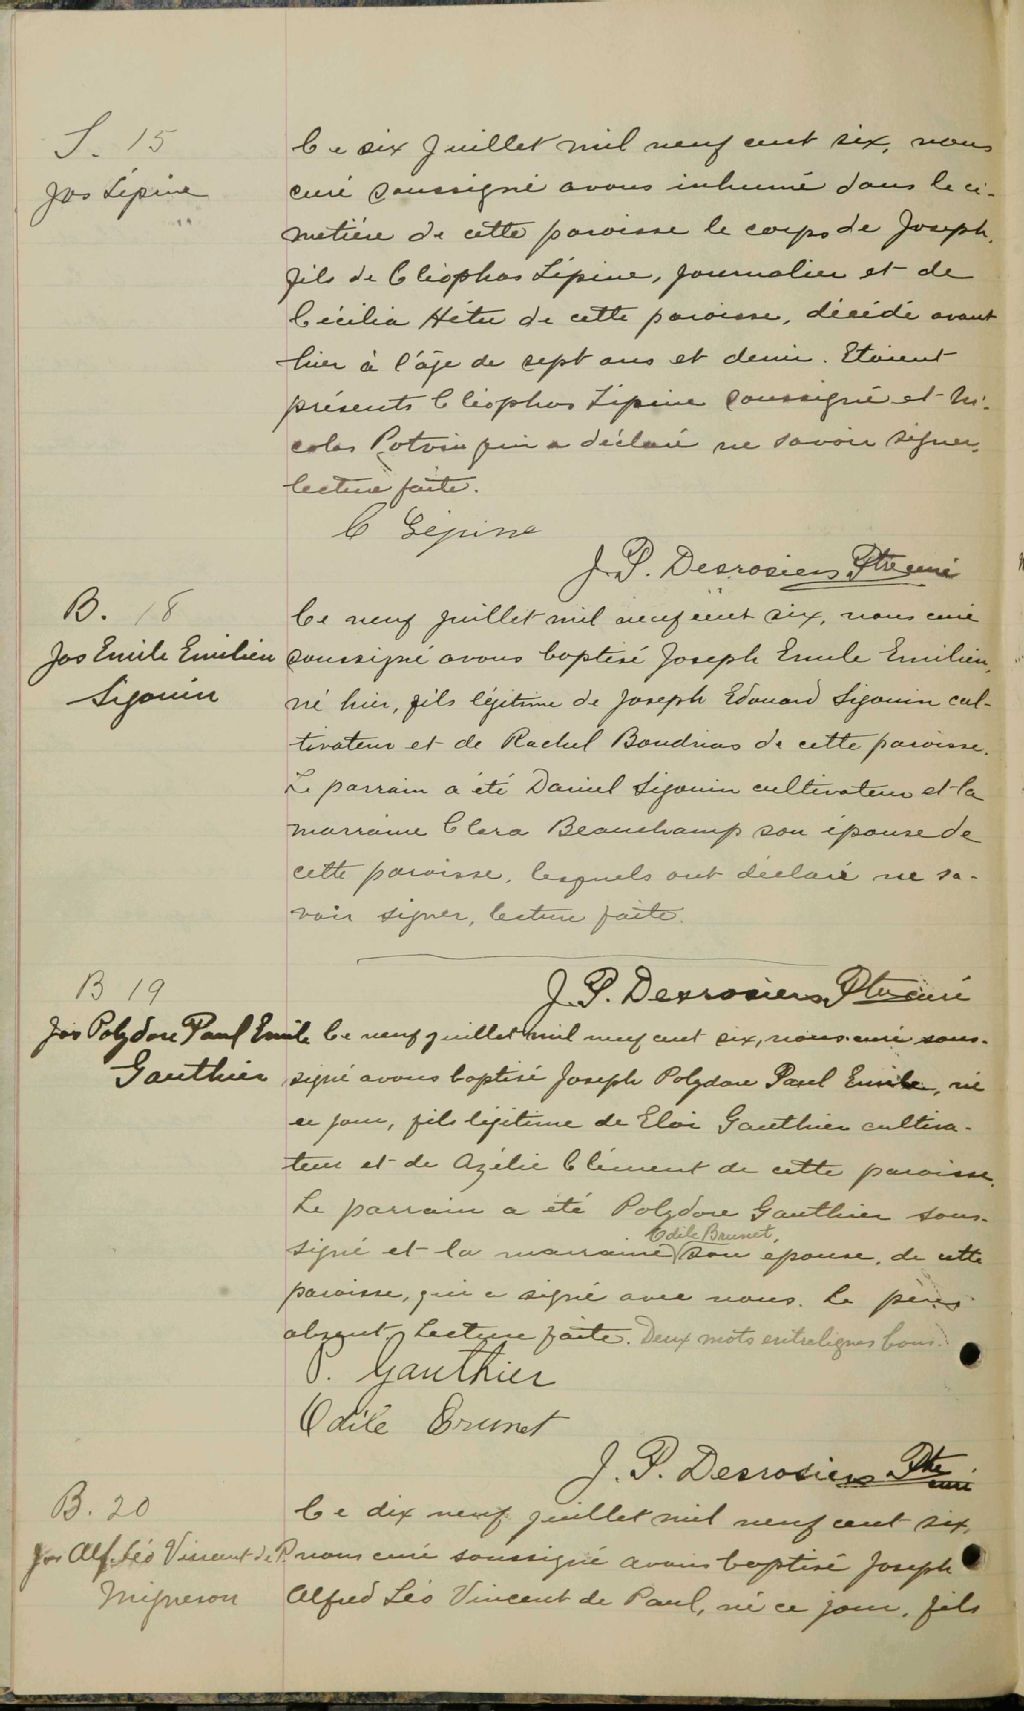 S. 15
Jos Lépine
Ce six juillet mil neuf cent six, nous
curé soussigné avons inhumé dans le ci-
metière de cette paroisse le corps de Joseph,
fils de Cléophas Lépine, journalier et de
Cécilia Hétu de cette paroisse, décédé avant
hier à l'âge de sept ans et demi. Etaient
présents Cléophas Lépine soussigné et Ni-
colas Potvin qui a déclaré ne savoir signer,
lecture faite.
C Lépine
J. P. Desrosiers Ptre curé
B. 18
Jos Emile Emilien
Sigouin
Ce neuf juillet mil neuf cent six, nous curé
soussigné avons baptisé Joseph Emile Emilien,
né hier, fils légitime de Joseph Edouard Sigouin cul-
tivateur et de Rachel Boudrias de cette paroisse.
Le parrain a été Daniel Sigouin cultivateur et la
marraine Clara Beauchamp son épouse de
cette paroisse, lesquels ont déclaré ne sa-
voir signer, lecture faite.
J. P. Desrosiers Ptre curé
B 19
Jos Polydore Paul Emile
Gauthier
Ce neuf juillet mil neuf cent six, nous curé sous-
signé avons baptisé Joseph Polydore Paul Emile, né
ce jour, fils légitime de Eloi Gauthier cultiva-
teur et de Azélie Clément de cette paroisse.
Le parrain a été Polydore Gauthier sous-
Odile Brunet,
signé et la marraine son épouse, de cette
paroisse, qui a signé avec nous. Le père
absent. Lecture faite. Deux mots entrelignes bons.
P. Gauthier
Odile Brunet
J. P. Desrosiers Ptre
curé
B. 20
Jos Alf. Léo Vincent de P.
Migneron
Ce dix neuf juillet mil neuf cent six,
nous curé soussigné avons baptisé Joseph
Alfred Léo Vincent de Paul, né ce jour, fils